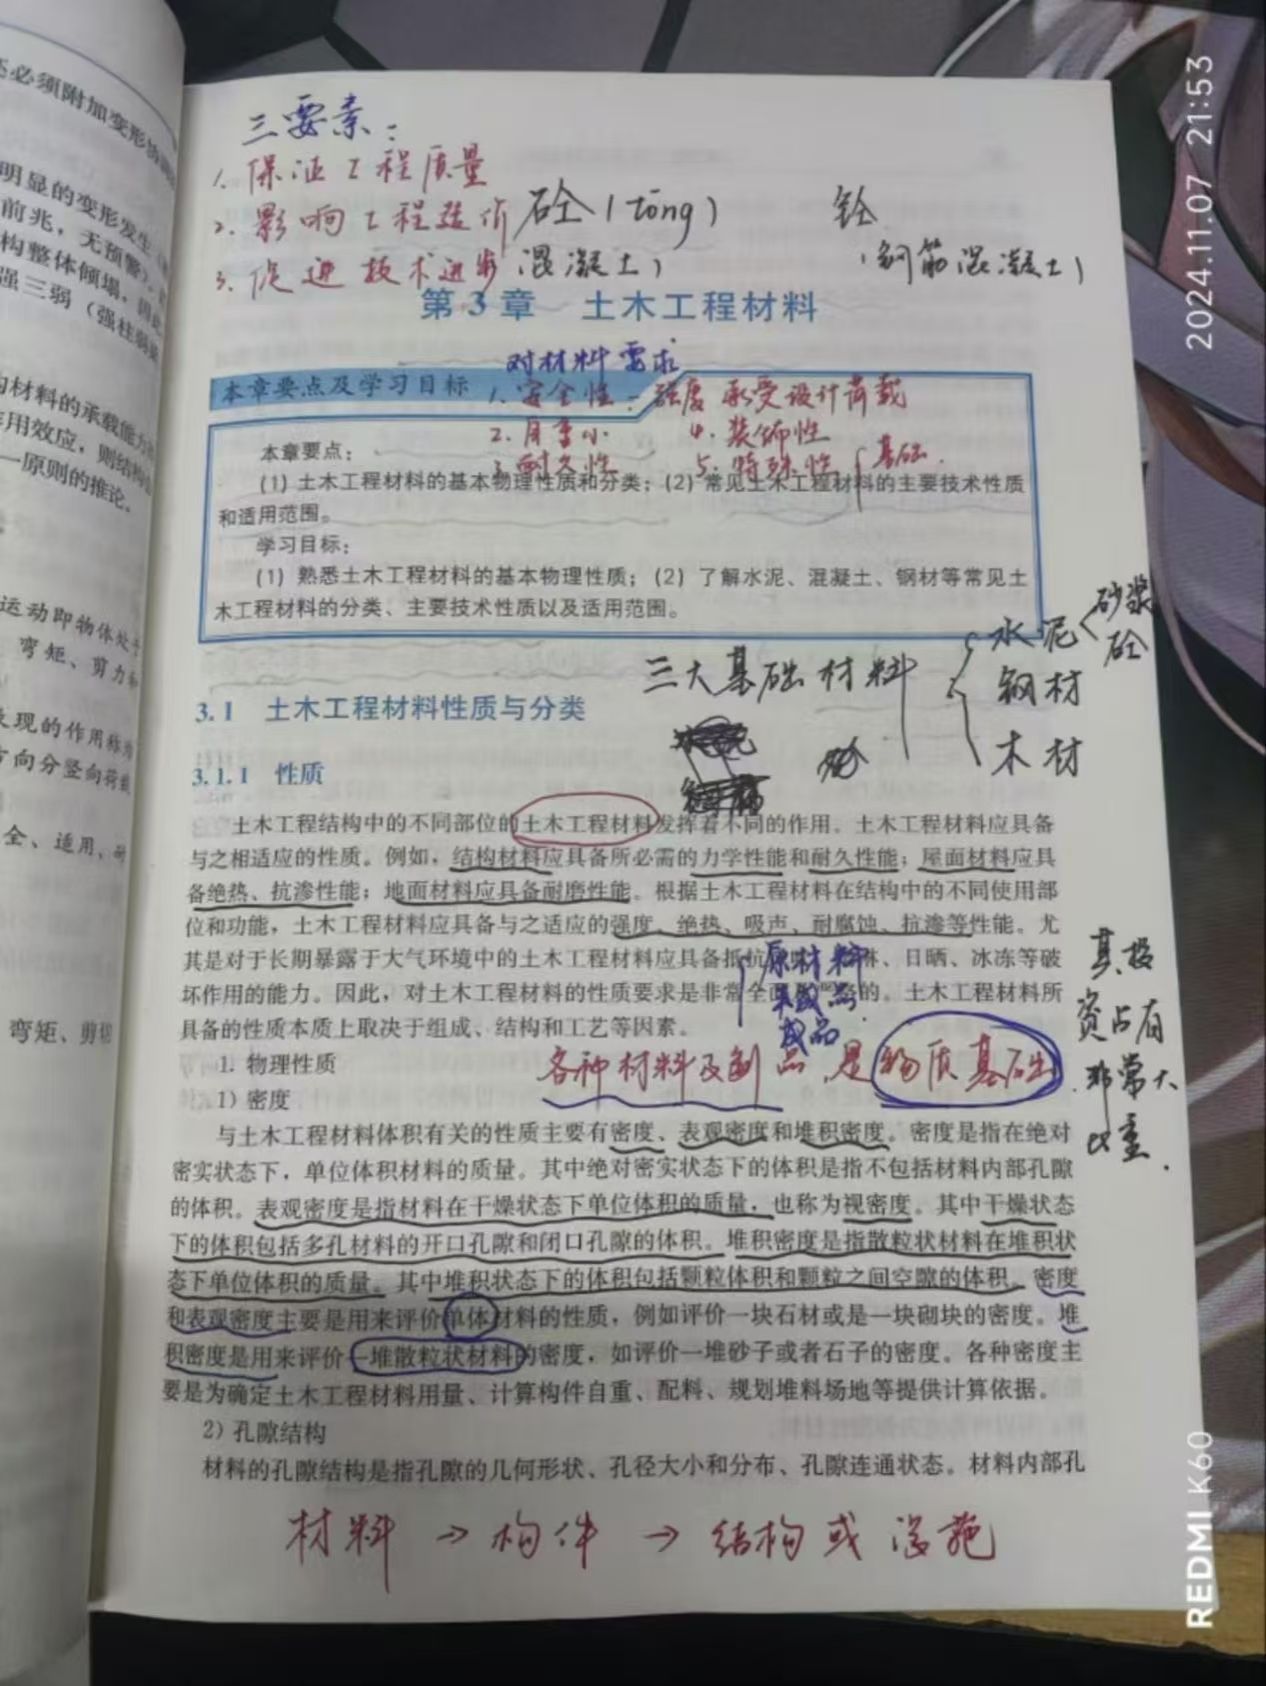 三要素：
1. 保证工程质量
2. 影响工程造价
3. 促进技术进步
砼(tóng)
(混凝土)
铨
(钢筋混凝土)
第3章 土木工程材料
对材料要求
本章要点及学习目标
1. 安全性：强度 承受设计荷载
2. 自重小 4. 装饰性
3. 耐久性 5. 特殊性 基础.
本章要点：
(1) 土木工程材料的基本物理性质和分类；(2) 常见土木工程材料的主要技术性质
和适用范围。
学习目标：
(1) 熟悉土木工程材料的基本物理性质；(2) 了解水泥、混凝土、钢材等常见土
木工程材料的分类、主要技术性质以及适用范围。
三大基础材料
水泥 砂浆 砼
钢材
木材
3.1 土木工程材料性质与分类
3.1.1 性质
土木工程结构中的不同部位的土木工程材料发挥着不同的作用。土木工程材料应具备
与之相适应的性质。例如，结构材料应具备所必需的力学性能和耐久性能；屋面材料应具
备绝热、抗渗性能；地面材料应具备耐磨性能。根据土木工程材料在结构中的不同使用部
位和功能，土木工程材料应具备与之适应的强度、绝热、吸声、耐腐蚀、抗渗等性能。尤
其是对于长期暴露于大气环境中的土木工程材料应具备抵抗 淋、日晒、冰冻等破
坏作用的能力。因此，对土木工程材料的性质要求是非常全面 的。土木工程材料所
具备的性质本质上取决于组成、结构和工艺等因素。
原材料
成品
其投
资占有
非常大
比重.
1. 物理性质
各种材料及制品是物质基础
1) 密度
与土木工程材料体积有关的性质主要有密度、表观密度和堆积密度。密度是指在绝对
密实状态下，单位体积材料的质量。其中绝对密实状态下的体积是指不包括材料内部孔隙
的体积。表观密度是指材料在干燥状态下单位体积的质量，也称为视密度。其中干燥状态
下的体积包括多孔材料的开口孔隙和闭口孔隙的体积。堆积密度是指散粒状材料在堆积状
态下单位体积的质量。其中堆积状态下的体积包括颗粒体积和颗粒之间空隙的体积。密度
和表观密度主要是用来评价单体材料的性质，例如评价一块石材或是一块砌块的密度。堆
积密度是用来评价一堆散粒状材料的密度，如评价一堆砂子或者石子的密度。各种密度主
要是为确定土木工程材料用量、计算构件自重、配料、规划堆料场地等提供计算依据。
2) 孔隙结构
材料的孔隙结构是指孔隙的几何形状、孔径大小和分布、孔隙连通状态。材料内部孔
材料 → 构件 → 结构或设施
必须附加变形协调
明显的变形发生
前兆，无预警
构整体倾塌
强三弱（强柱弱
构材料的承载能力
作用效应，则结构
一原则的推论。
运动即物体处于
弯矩、剪力和
表现的作用称为
方向分竖向荷载
全、适用、耐
弯矩、剪切
2024.11.07 21:53
REDMI K60